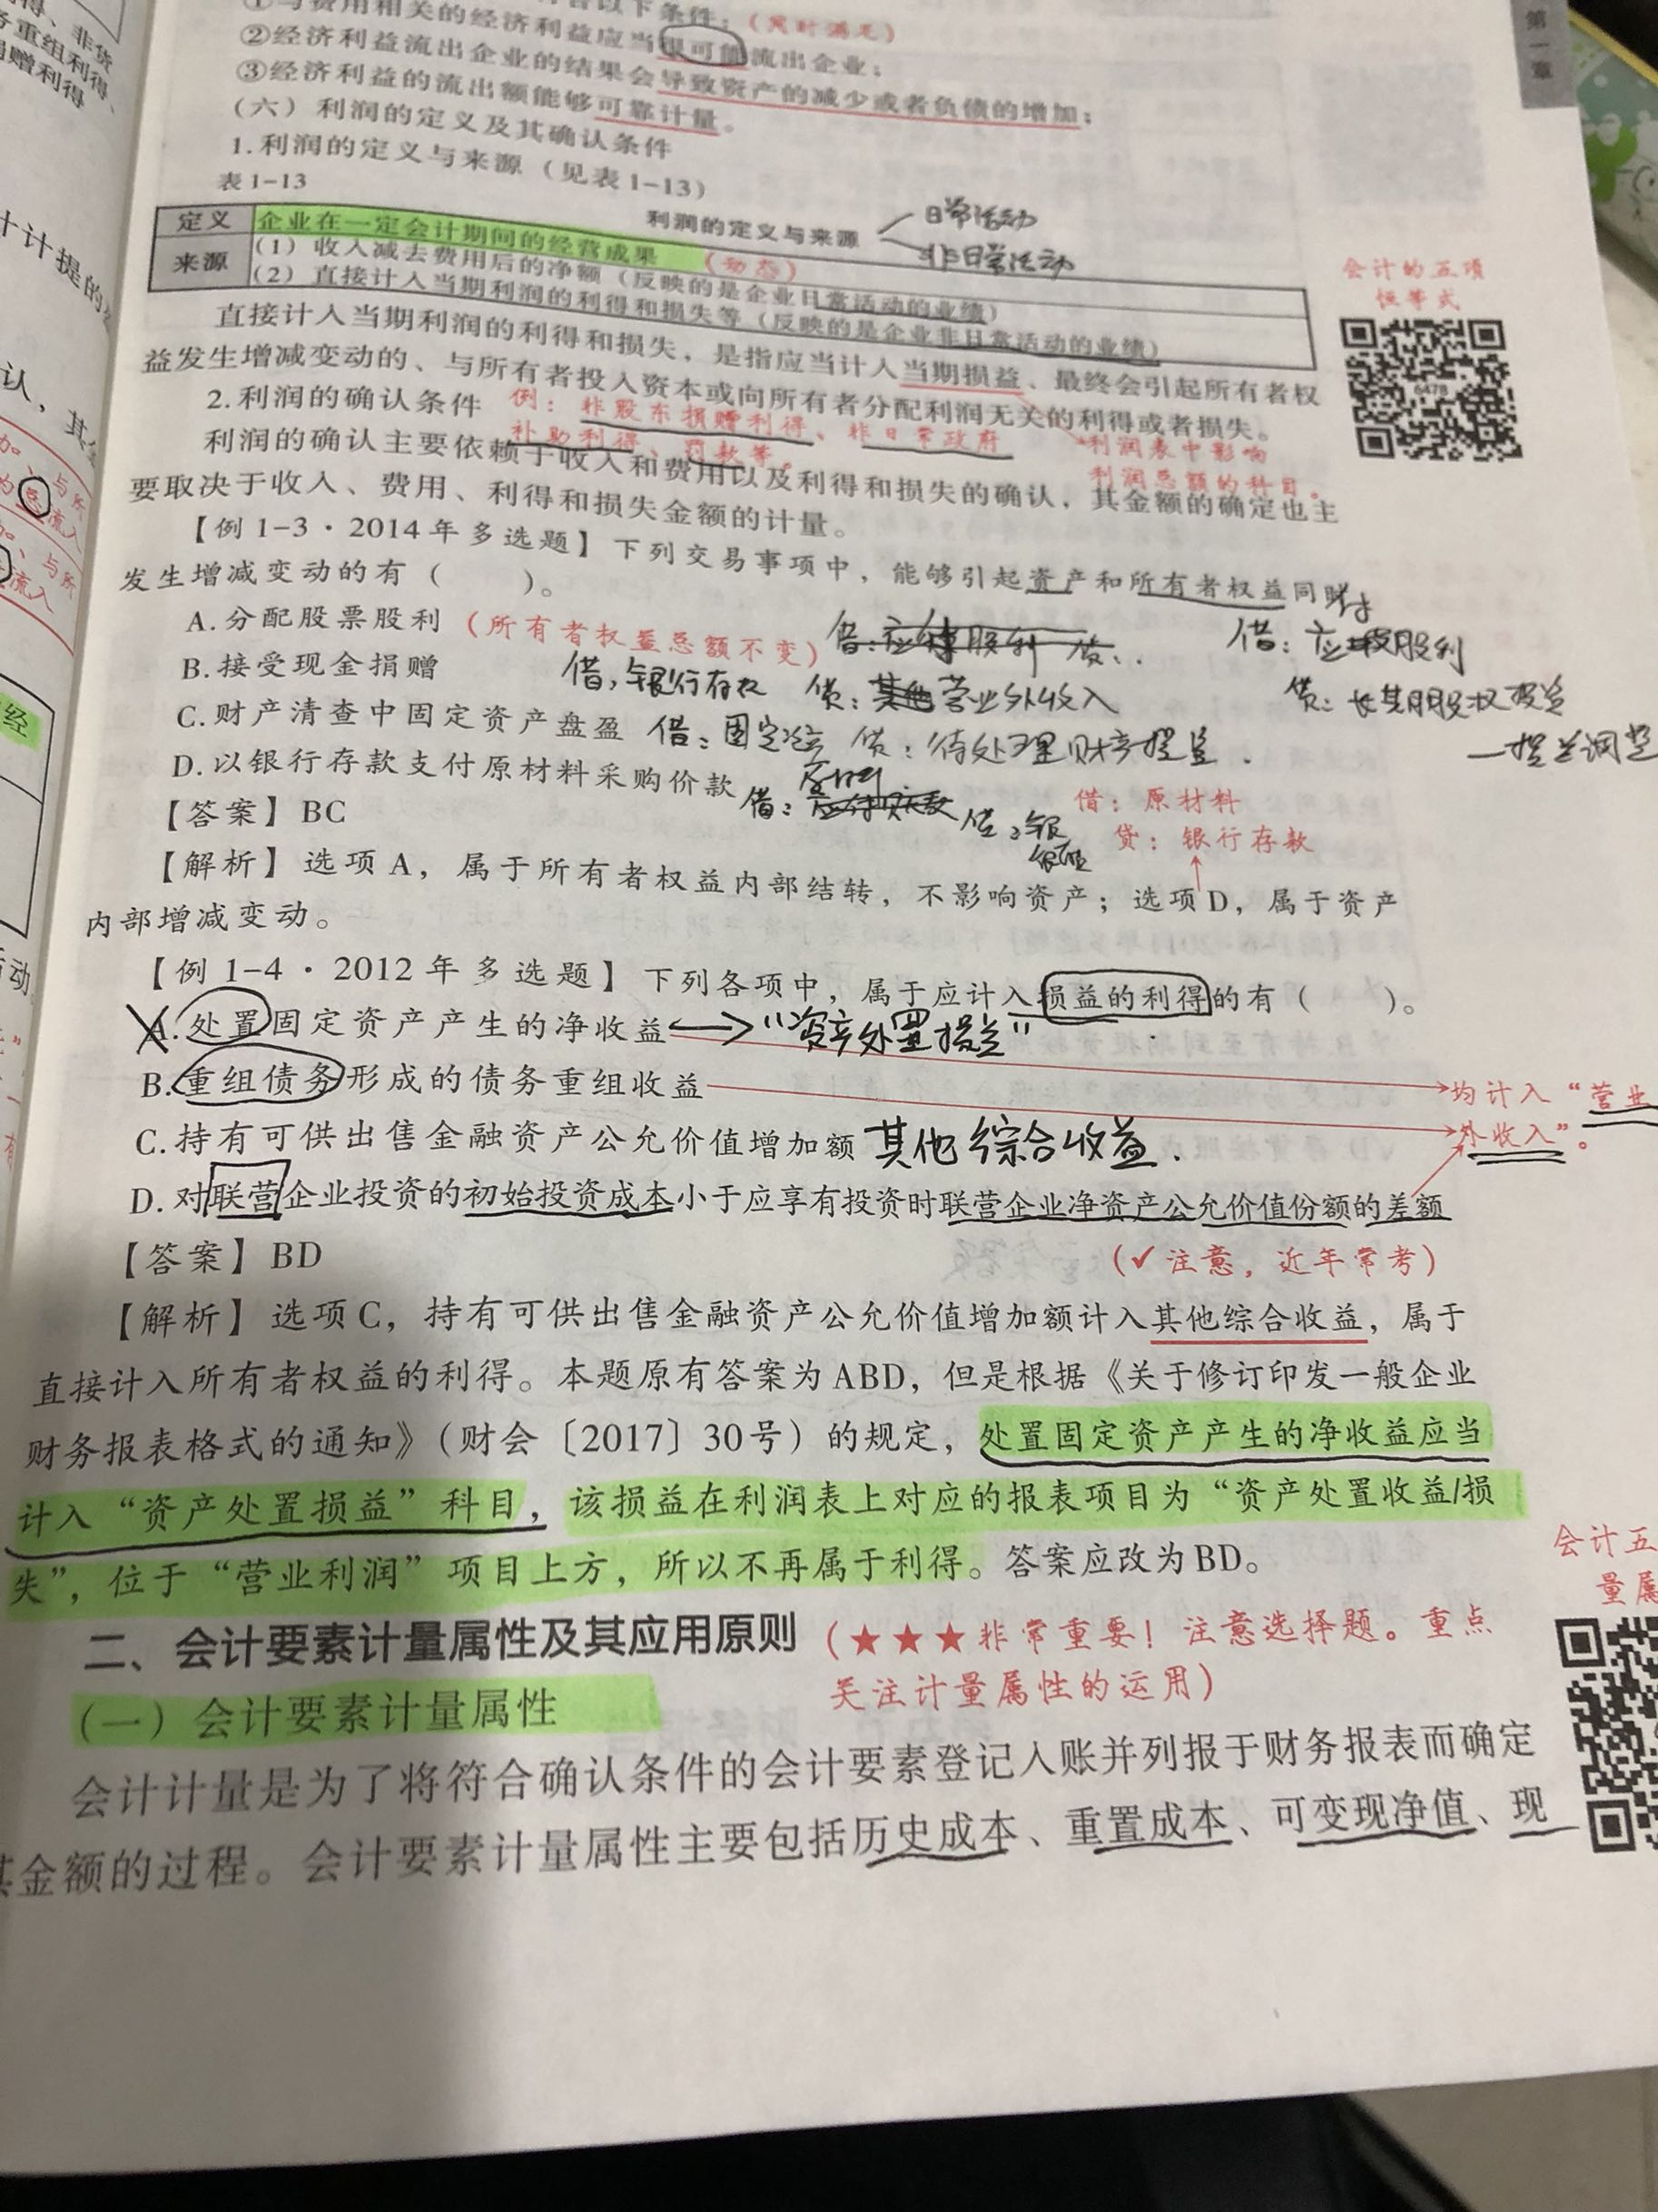 得、非货
务重组利得、
捐赠利得
十计提的
认，其
加、与所
为总流入
加、与所
流入
经
动
第一章
①与费用相关的经济利益应当很可能流出企业；（同时满足）
②经济利益流出企业的结果会导致资产的减少或者负债的增加；
③经济利益的流出额能够可靠计量。
（六）利润的定义及其确认条件
1.利润的定义与来源（见表1-13）
表1-13
利润的定义与来源
日常活动
非日常活动
定义 企业在一定会计期间的经营成果（动态）
来源 （1）收入减去费用后的净额（反映的是企业日常活动的业绩）
（2）直接计入当期利润的利得和损失等（反映的是企业非日常活动的业绩）
会计的五项
恒等式
6478
直接计入当期利润的利得和损失，是指应当计入当期损益、最终会引起所有者权
益发生增减变动的、与所有者投入资本或向所有者分配利润无关的利得或者损失。
2.利润的确认条件 例：非股东捐赠利得、非日常政府
补助利得、罚款等。
利润表中影响
利润总额的科目。
利润的确认主要依赖于收入和费用以及利得和损失的确认，其金额的确定也主
要取决于收入、费用、利得和损失金额的计量。
【例1-3·2014年多选题】下列交易事项中，能够引起资产和所有者权益同时
发生增减变动的有（ ）。
A.分配股票股利（所有者权益总额不变）借：应付股利 贷：..
借：应收股利
B.接受现金捐赠 借：银行存款 贷：其他营业外收入
贷：长期股权投资
—损益调整
C.财产清查中固定资产盘盈 借：固定资产 贷：待处理财产损益.
D.以银行存款支付原材料采购价款 借：应付账款 原材料 贷：银
借：原材料
贷：银行存款
【答案】BC
【解析】选项A，属于所有者权益内部结转，不影响资产；选项D，属于资产
内部增减变动。
【例1-4·2012年多选题】下列各项中，属于应计入损益的利得的有（ ）。
A.处置固定资产产生的净收益 “资产处置损益”
B.重组债务形成的债务重组收益
均计入“营业
外收入”。
C.持有可供出售金融资产公允价值增加额 其他综合收益.
D.对联营企业投资的初始投资成本小于应享有投资时联营企业净资产公允价值份额的差额
【答案】BD
（✓注意，近年常考）
【解析】选项C，持有可供出售金融资产公允价值增加额计入其他综合收益，属于
直接计入所有者权益的利得。本题原有答案为ABD，但是根据《关于修订印发一般企业
财务报表格式的通知》（财会〔2017〕30号）的规定，处置固定资产产生的净收益应当
计入“资产处置损益”科目，该损益在利润表上对应的报表项目为“资产处置收益/损
失”，位于“营业利润”项目上方，所以不再属于利得。答案应改为BD。
会计五
量属
二、会计要素计量属性及其应用原则（★★★非常重要！注意选择题。重点
关注计量属性的运用）
（一）会计要素计量属性
会计计量是为了将符合确认条件的会计要素登记入账并列报于财务报表而确定
其金额的过程。会计要素计量属性主要包括历史成本、重置成本、可变现净值、现